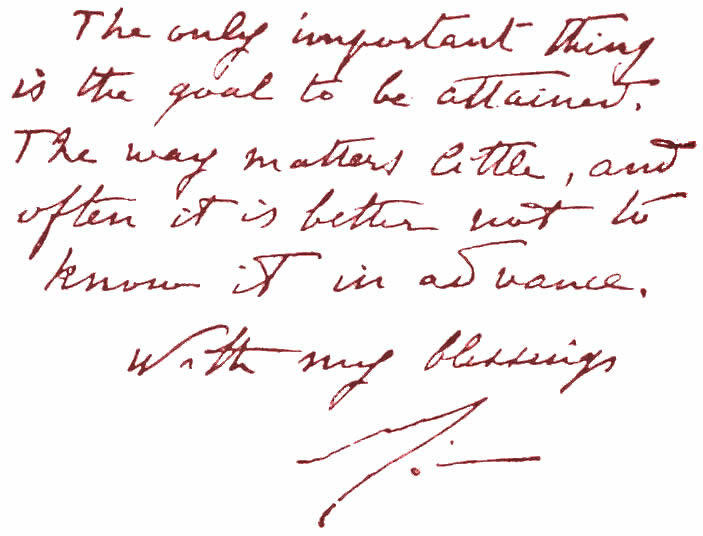 The only important thing
is the goal to be attained.
The way matters little, and
often it is better not to
know it in advance.
With my blessings